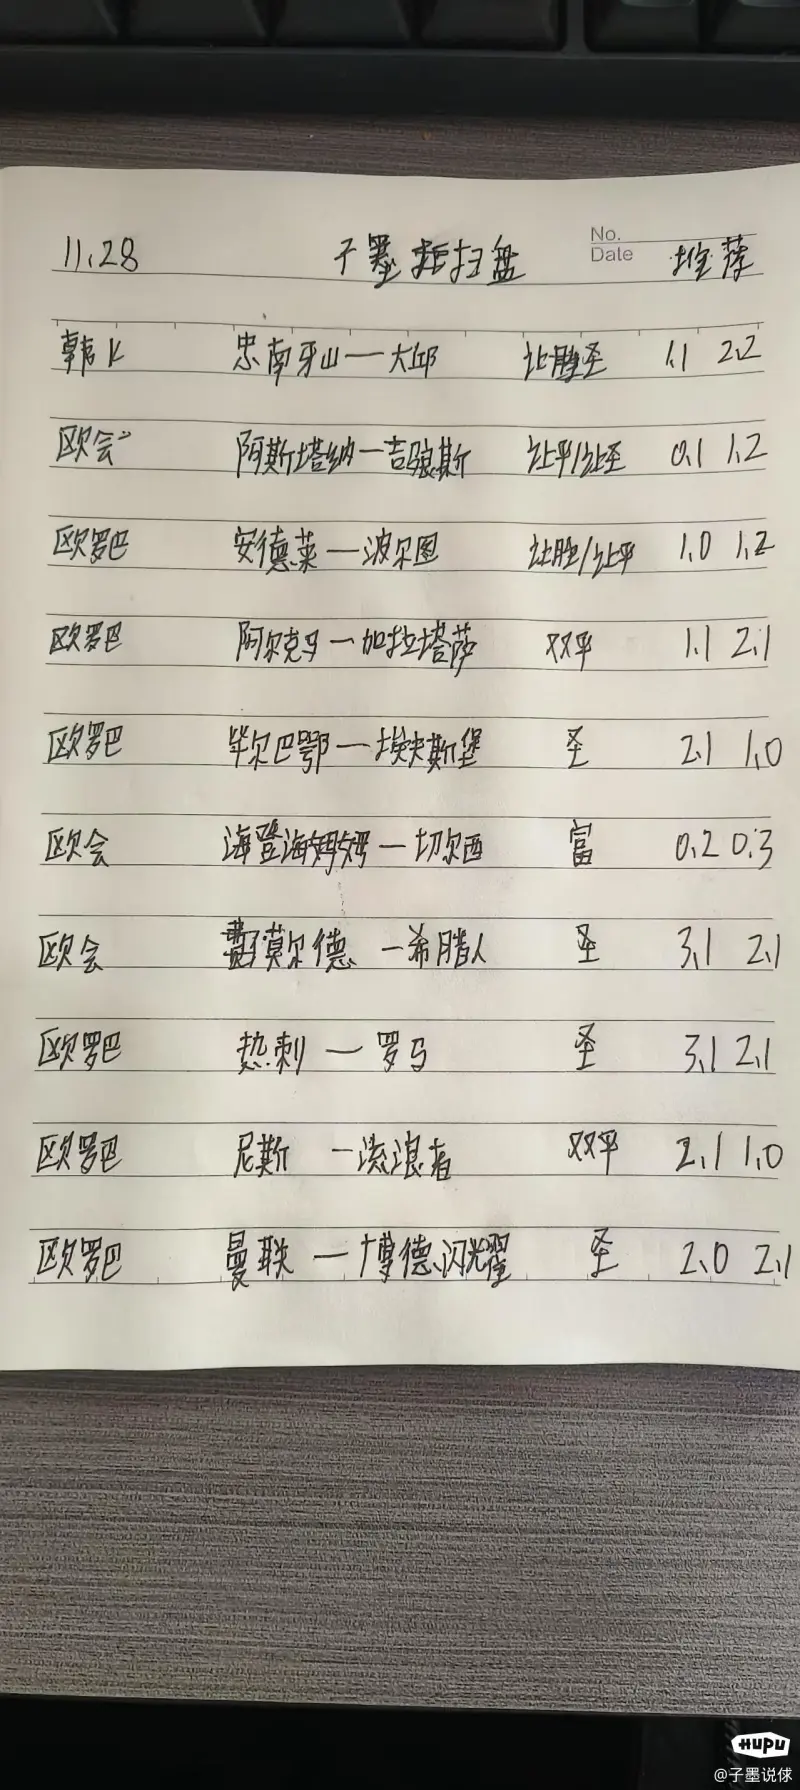 11.28 子墨 扫盘 No. Date 推荐
韩K 忠南牙山—大邱 让胜圣 1.1 2.2
欧会 阿斯塔纳—吉维斯 让平/让圣 0.1 1.2
欧罗巴 安德莱—波尔图 让胜/让平 1.0 1.2
欧罗巴 阿尔克马—加拉塔萨 双平 1.1 2.1
欧罗巴 毕尔巴鄂—埃夫斯堡 圣 2.1 1.0
欧会 海登海姆—切尔西 富 0.2 0.3
欧会 莫尔德—希腊人 圣 3.1 2.1
欧罗巴 热刺—罗马 圣 3.1 2.1
欧罗巴 尼斯—流浪者 双平 2.1 1.0
欧罗巴 曼联—博德闪耀 圣 2.0 2.1
HUPU
@子墨说俅